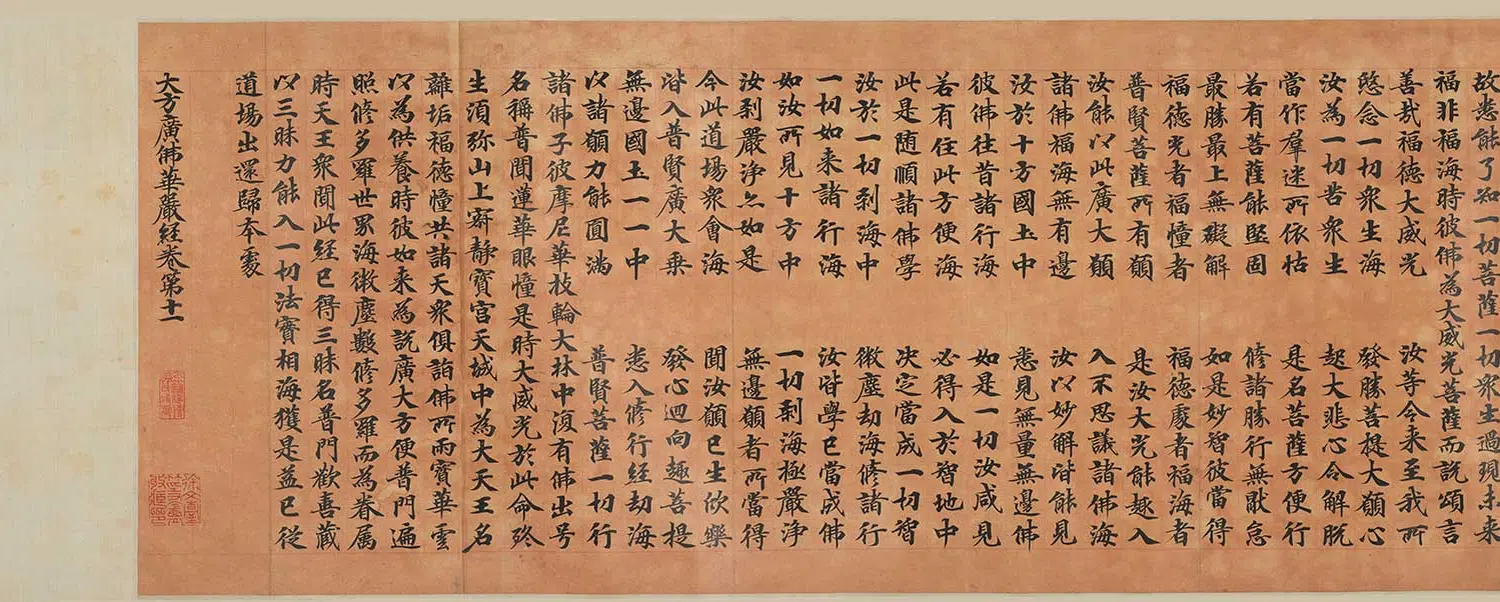 故悉能了知一切菩薩一切衆生過現未来
福非福海時彼佛為大威光菩薩而説頌言
善哉福德大威光 汝等今来至我所
愍念一切衆生海 發勝菩提大願心
汝為一切苦衆生 起大悲心令解脱
當作羣迷所依怙 是名菩薩方便行
若有菩薩能堅固 修諸勝行無猒怠
最勝最上無礙解 如是妙智彼當得
福德光者福幢者 福德處者福海者
普賢菩薩所有願 是汝大光能趣入
汝能以此廣大願 入不思議諸佛海
諸佛福海無有邊 汝以妙解皆能見
汝於十方國土中 悉見無量無邊佛
彼佛往昔諸行海 如是一切汝咸見
若有住此方便海 必得入於智地中
此是随順諸佛學 决定當成一切智
汝於一切刹海中 微塵劫海修諸行
一切如来諸行海 汝皆學已當成佛
如汝所見十方中 一切刹海極嚴淨
汝刹嚴淨亦如是 無邊願者所當得
今此道場衆會海 聞汝願已生欣樂
皆入普賢廣大乗 發心迴向趣菩提
無邊國土一一中 悉入修行経劫海
以諸願力能圓滿 普賢菩薩一切行
諸佛子彼摩尼華枝輪大林中復有佛出号
名稱普聞蓮華眼幢是時大威光於此命終
生須弥山上寂静寶宫天城中為大天王名
離垢福德幢共諸天衆俱詣佛所雨寶華雲
以為供養時彼如来為説廣大方便普門遍
照修多羅世界海微塵數修多羅而為眷属
時天王衆聞此経已得三昧名普門歡喜藏
以三昧力能入一切法實相海獲是益已從
道場出還歸本處
大方廣佛華嚴経卷第十一